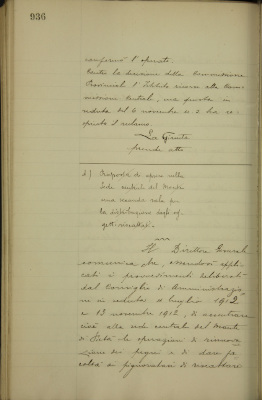 936
confermò l'operato.
Contro la decisione della Commissione
Provinciale l'Istituto ricorse alla Com-
missione Centrale, ma questa in
seduta del 6 novembre u. s. ha re-
spinto il reclamo.
La Giunta
prende atto
4) Proposta di aprire nella
Sede centrale del Monte
una seconda sala per
la distribuzione degli og-
getti riscattati.
Il Direttore Generale
comunica che, essendosi appli-
cati i provvedimenti deliberati
dal Consiglio di Amministrazio-
ne in seduta luglio 1912
e 13 novembre 1912, di accentrare
cioè alla sede centrale del Monte
di Pietà le operazioni di rinnova-
zione dei pegni e di dare fa-
coltà ai pignoratari di riscattare